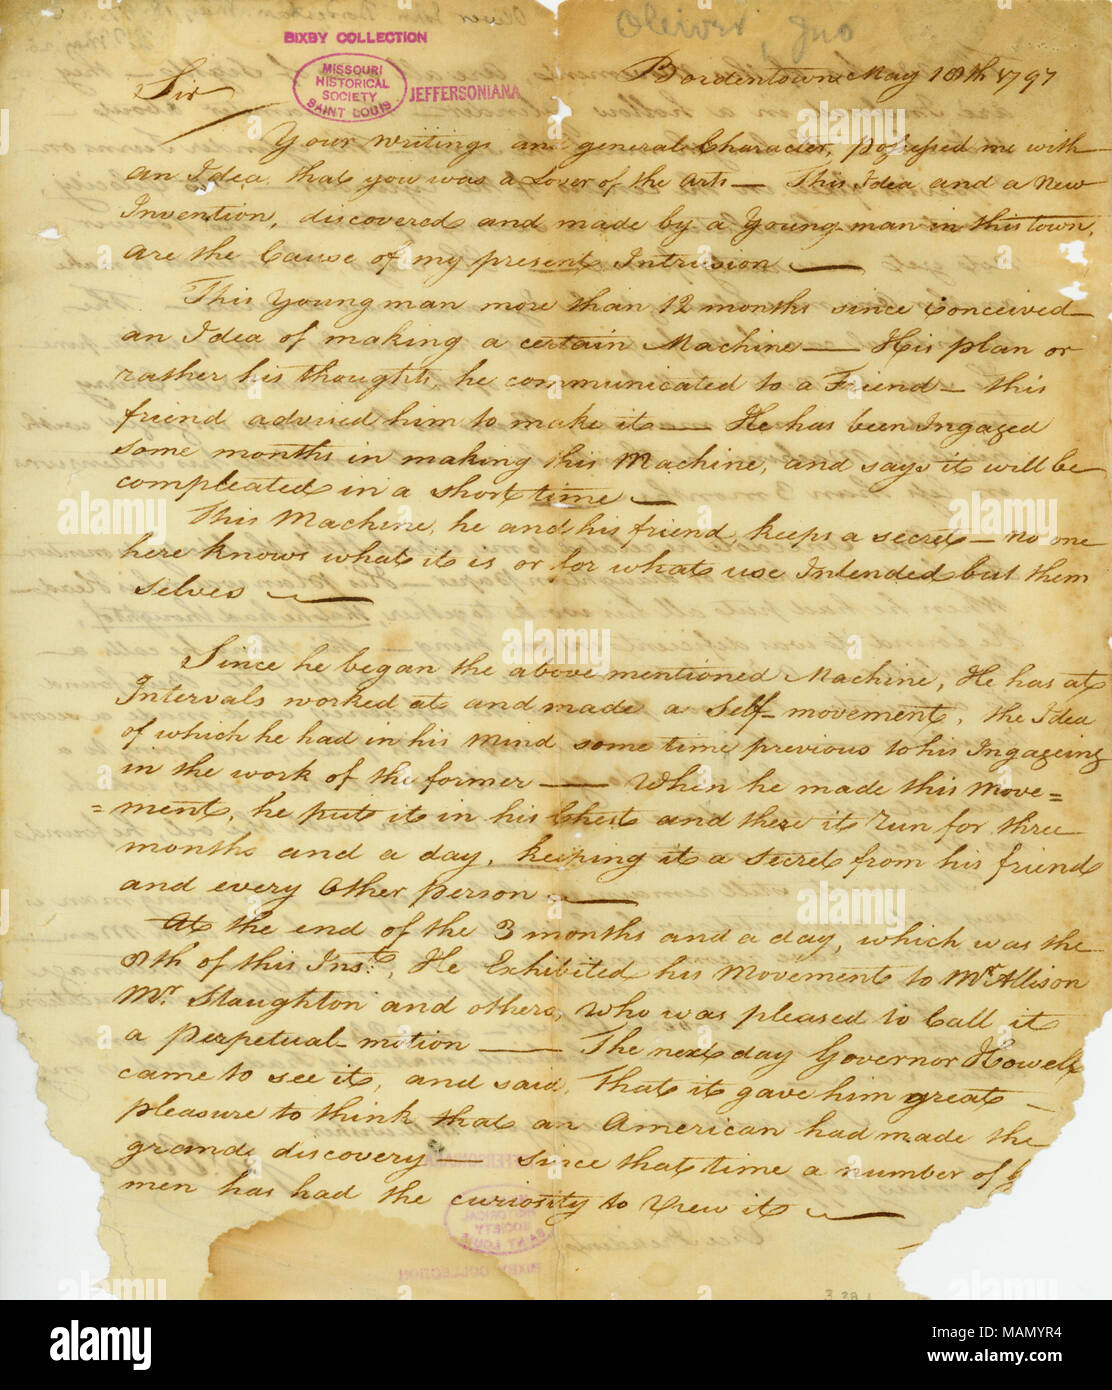 Oliver, Jno
BIXBY COLLECTION
MISSOURI
HISTORICAL
SOCIETY
SAINT LOUIS
JEFFERSONIANA
Bordentown May 18th 1797
Sir
Your writings and general Character, Possessed me with
an Idea that you was a Lover of the arts — This Idea and a New
Invention, discovered and made by a Young man in this town,
are the Cause of my present Intrusion —
This Young man more than 12 months since Conceived
an Idea of making a certain Machine — His plan or
rather his thoughts, he communicated to a Friend — this
friend advised him to make it — He has been Ingaged
some months in making this Machine, and says it will be
compleated in a short time —
This Machine, he and his friend, keeps a secret — no one
here knows what it is or for what use Intended but them
selves —
Since he began the above mentioned Machine, He has at
Intervals worked at and made a Self-movement, the Idea
of which he had in his mind some time previous to his Ingageing
in the work of the former — When he made this Move=
=ment, he put it in his Chest and there it run for three
months and a day, keeping it a Secret from his friend
and every Other person —
At the end of the 3 months and a day, which was the
8th of this Inst., He Exhibited his Movement to Mr Allison
Mr. Staughton and others, who was pleased to Call it
a Perpetual-motion — The next day Governor Howell
came to see it, and said, That it gave him great
pleasure to think that an American had made the
grand discovery — since that time a number of
men has had the curiosity to View it —
3 28 1
alamy
Image ID: MAMYR4
www.alamy.com